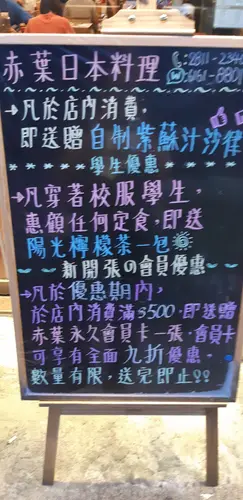 赤葉日本料理
2811-2344
6161-8801
→凡於店內消費,
即送贈自制紫蘇汁沙律
學生優惠
→凡穿著校服學生,
惠顧任何定食,即送
陽光檸檬茶一包
新開張の會員優惠
→凡於優惠期內,
於店內消費滿$500,即送贈
赤葉永久會員卡一張,會員卡
可享有全面九折優惠。
數量有限,送完即止!!